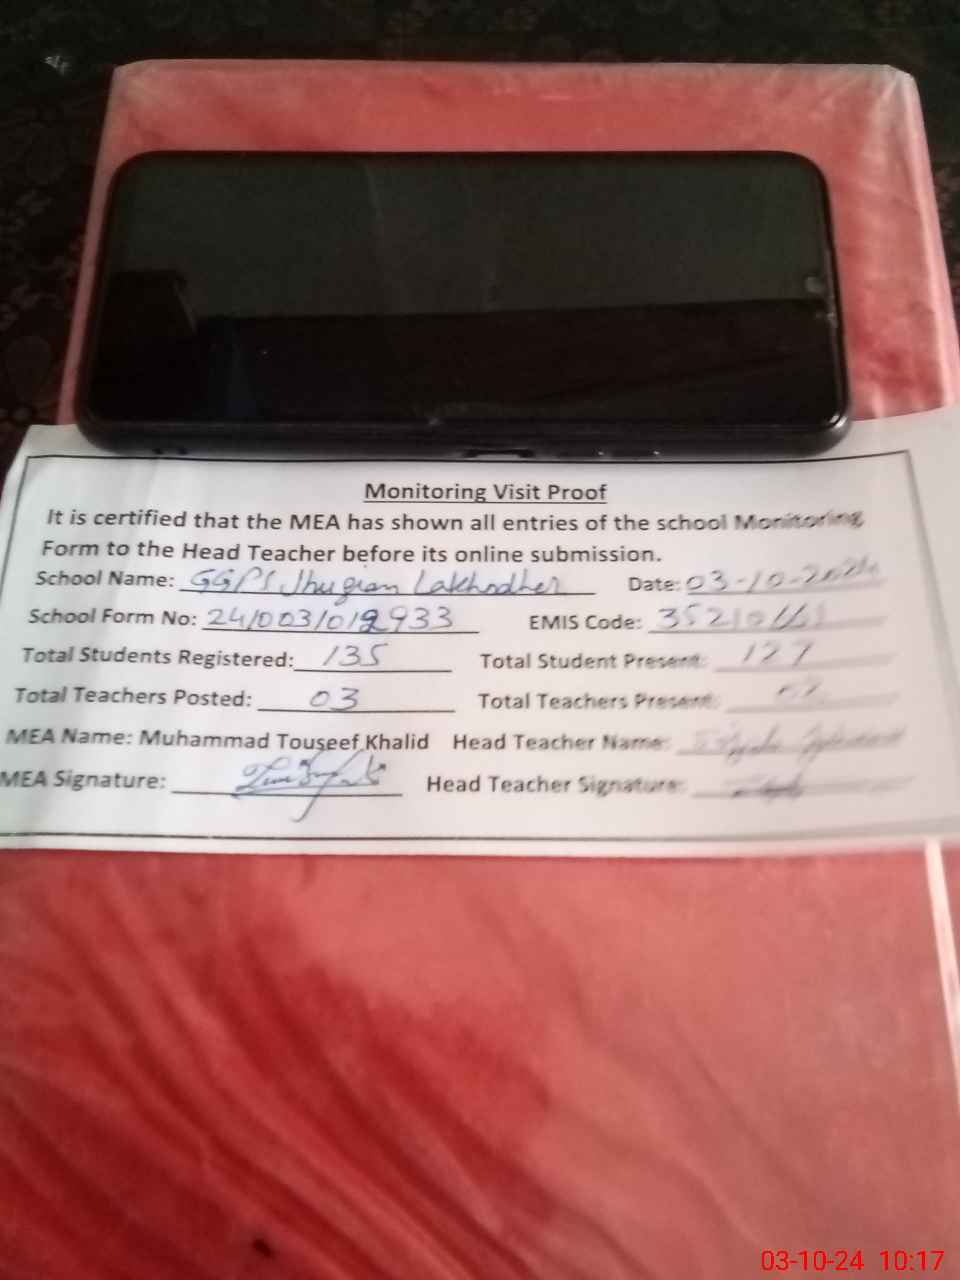 Monitoring Visit Proof
It is certified that the MEA has shown all entries of the school Monitoring
Form to the Head Teacher before its online submission.
School Name: GGPS Jhugian Lakhodher Date: 03-10-2024
School Form No: 24/003/012933 EMIS Code:
Total Students Registered: 135 Total Student Present: 127
Total Teachers Posted: 03 Total Teachers Present:
MEA Name: Muhammad Touseef Khalid Head Teacher Name:
MEA Signature: Head Teacher Signature:
03-10-24 10:17